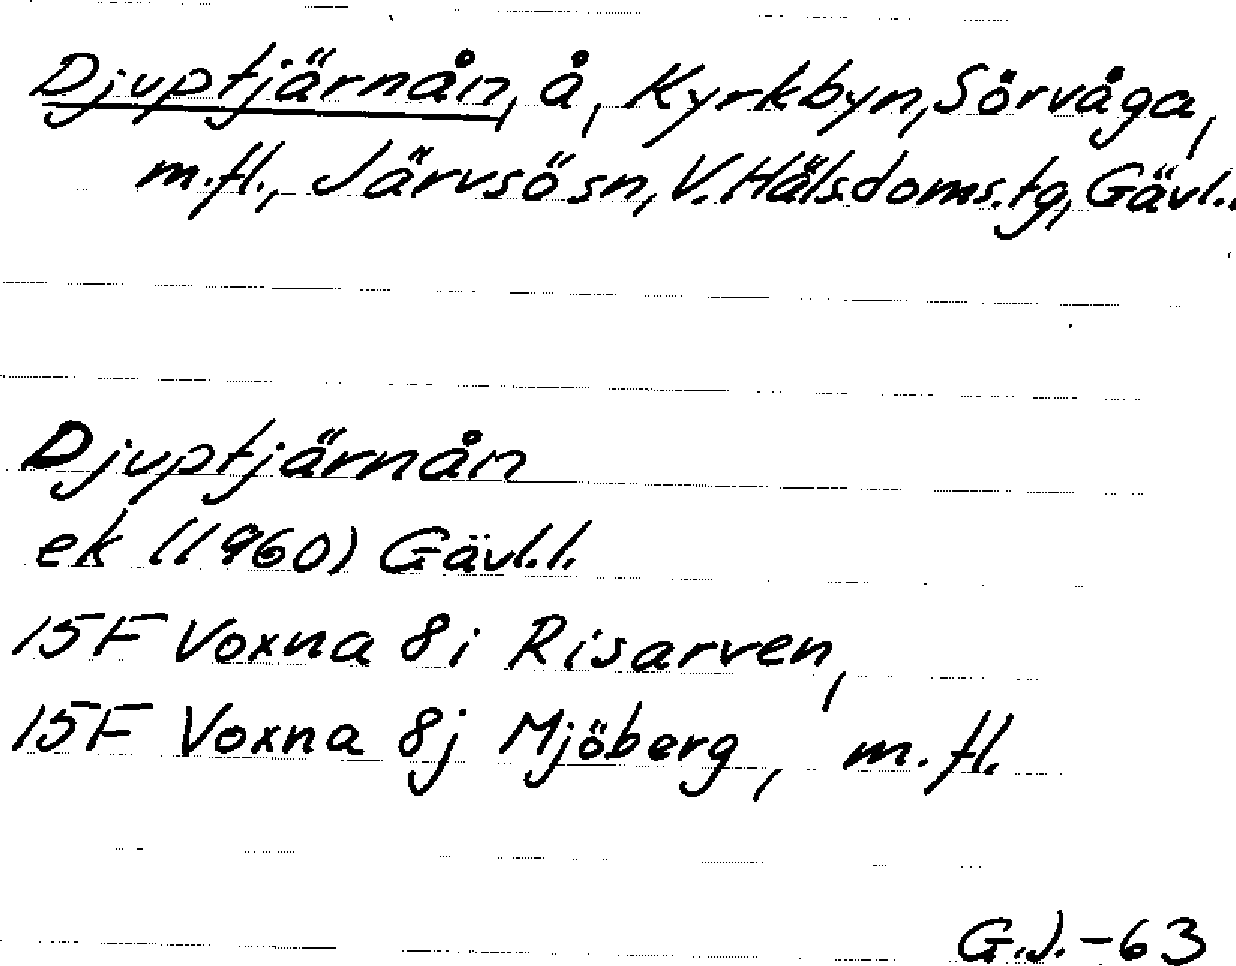 Djuptjärnån, å, Kyrkbyn, Sörvåga,
m.fl., Järvsö sn, V. Häls.doms.tg, Gävl.
Djuptjärnån
ek (1960) Gävl.l.
15F Voxna 8i Risarven,
15F Voxna 8j Mjöberg, m.fl.
G.J. -63